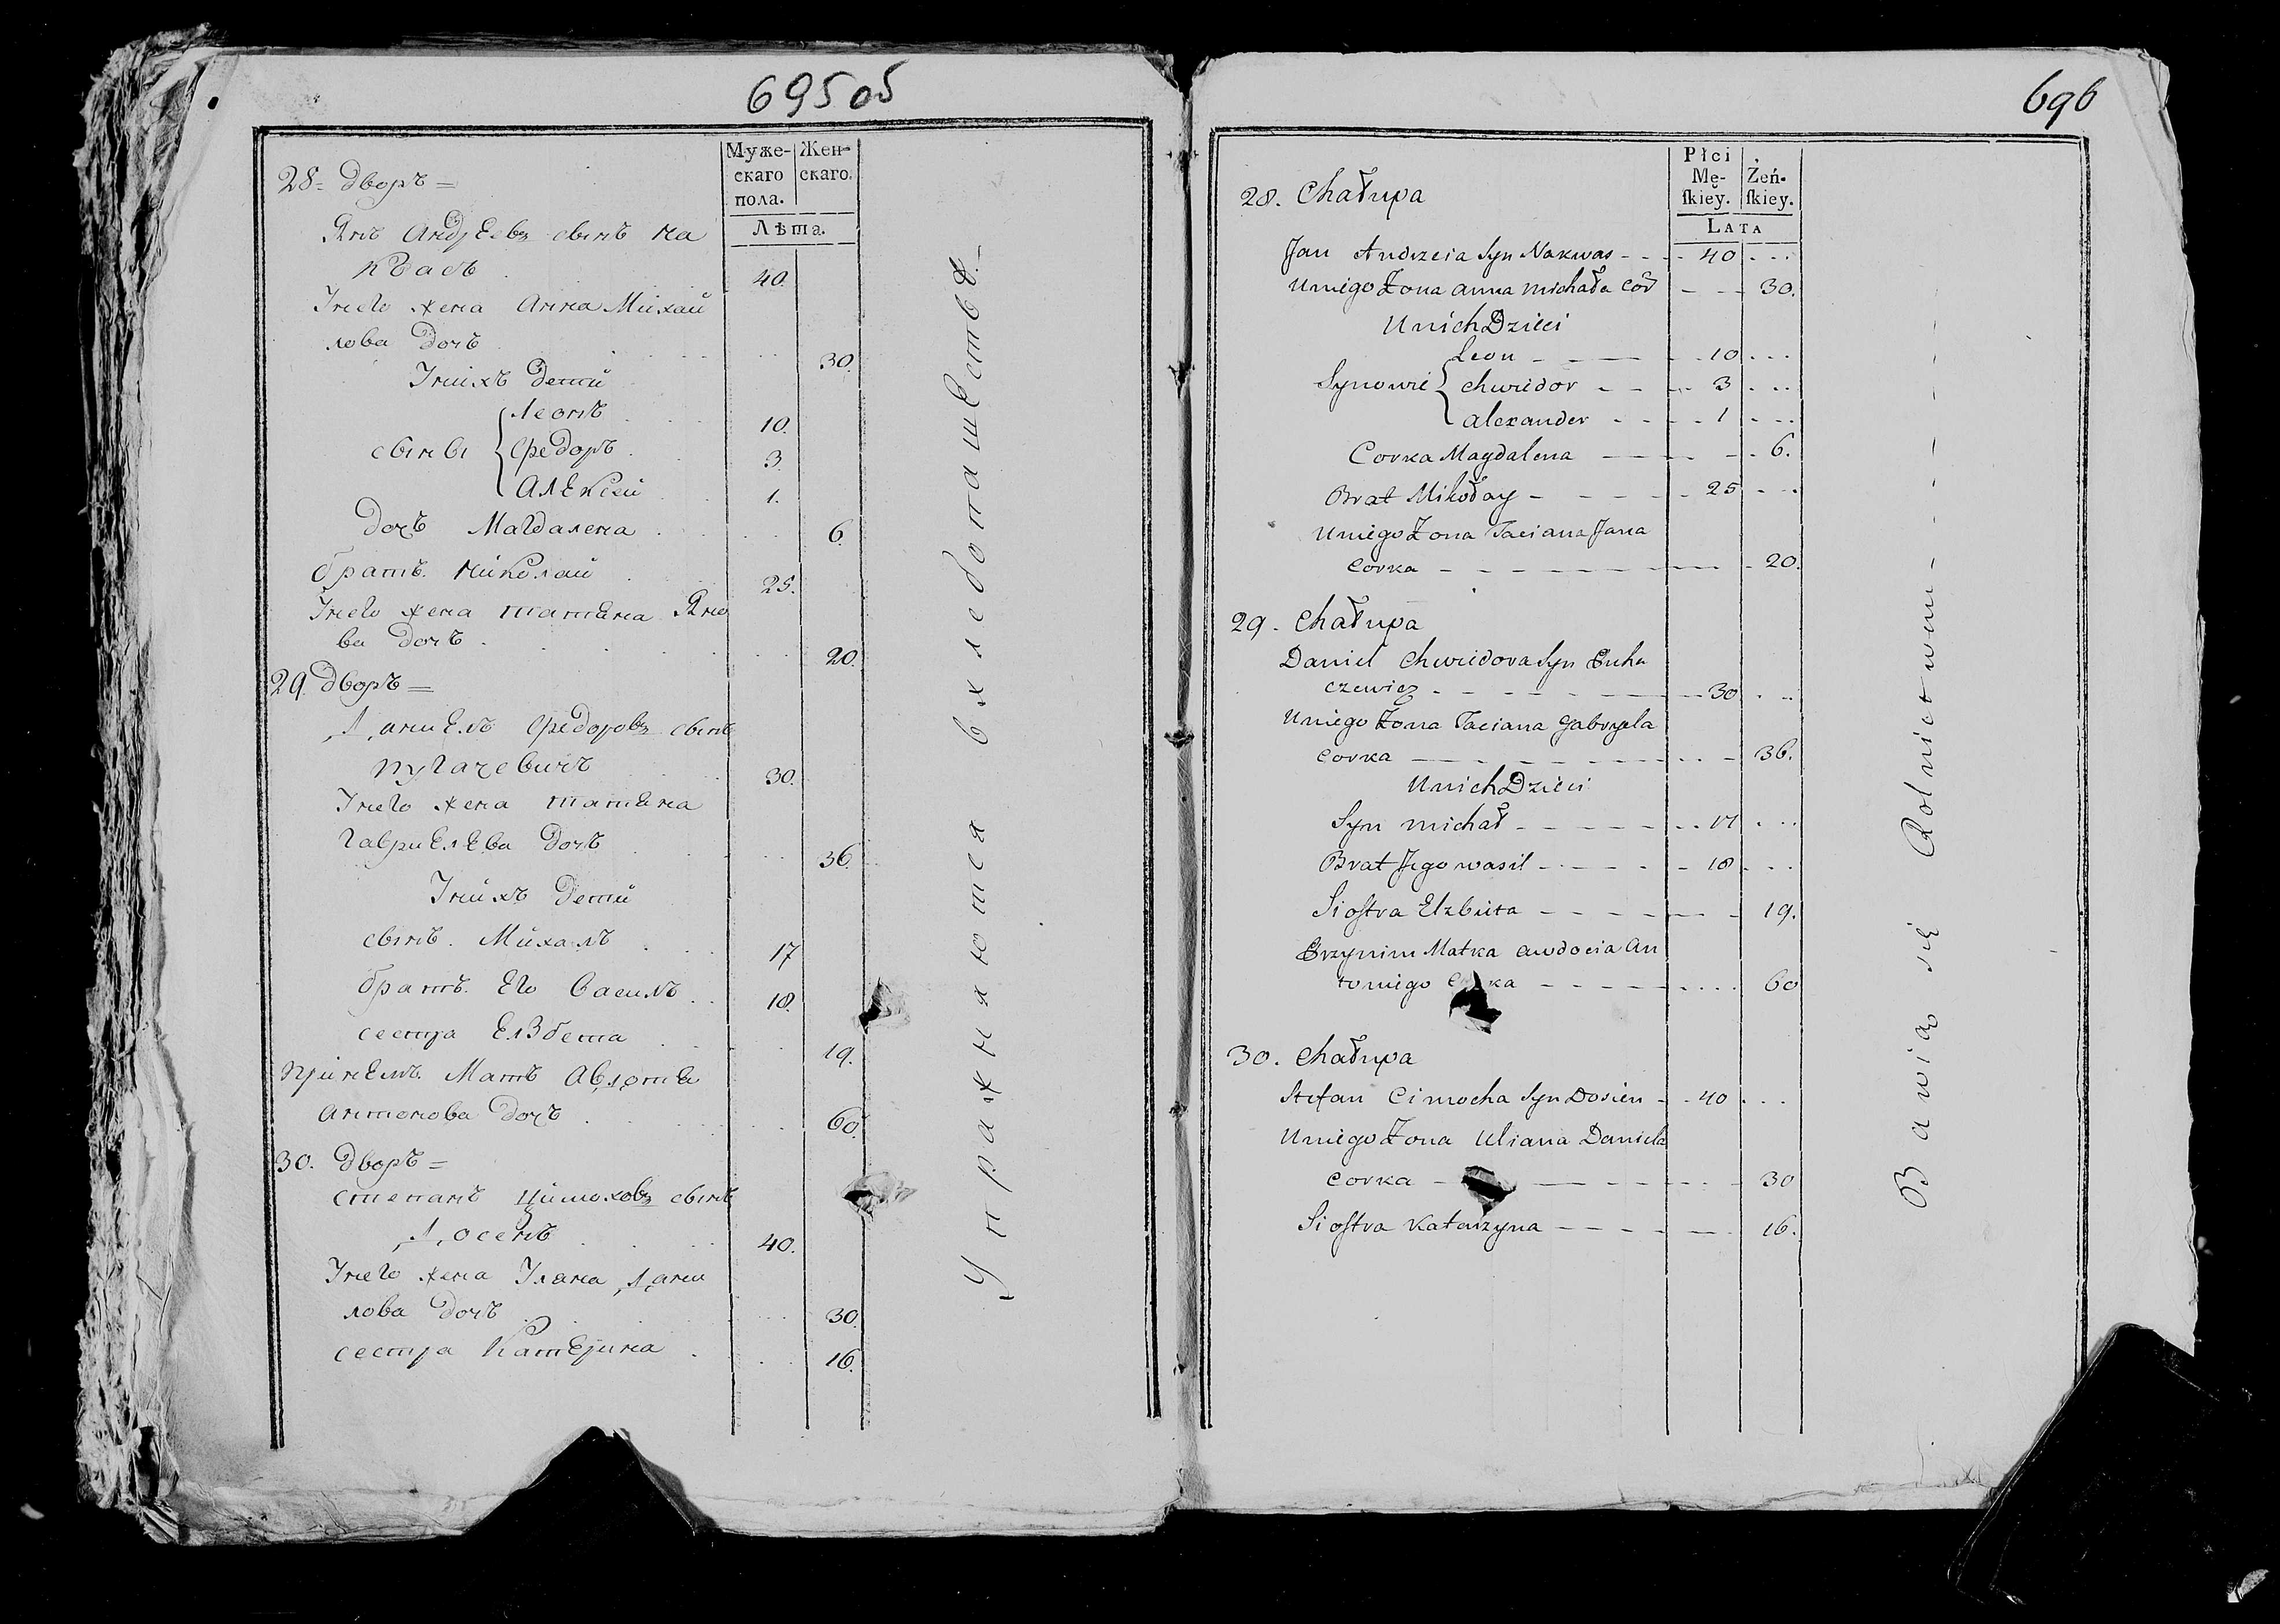 695 об
Муже-
скаго
пола.
Жен-
скаго.
Лѣта.
28= дворъ=
Янъ Андреевъ сынъ На
квасъ 40.
Унего жена Анна Михай
лова дочь 30.
Унихъ дети
Леонъ 10.
сыны Федоръ 3.
Алексей 1.
дочь Магдалена 6.
братъ Николай 25.
Унего жена татьяна Яно
ва дочь 20.
29. дворъ=
Даниель Федоровъ сынъ
пугачевичъ 30.
Унего жена татьяна
гавриелева дочь 36.
Унихъ дети
сынъ Михалъ 17
братъ Его Василь 18.
сестра Елзбета 19.
принемъ Мать Авдотья
антонова дочь 60.
30. дворъ=
степанъ Цимоховъ сынъ
Досенъ 40.
Унего жена Уляна Дани
лова дочь 30.
сестра Катерина 16.
Упражняются в хлебопашестве.
696
Płci
Mę-
ſkiey.
Żeń-
ſkiey.
LATA
28. Chałupa
Jan Andrzeia Syn Nakwas 40
Uniego Żona anna michała Cor 30.
Unich Dzieci
Leon 10
Synowie chwiedor 3
alexander 1
Corka Magdalena 6.
Brat Mikołay 25
Uniego Żona Taciana Jana
Corka 20.
29. Chałupa
Daniel Chwiedora Syn Puha
czewicz 30
Uniego Żona Taciana Gabryela
Corka 36.
Unich Dzieci
Syn michał 17
Brat Jego wasil 18
Sioſtra Elzbieta 19.
Przynim Matka awdocia An
toniego ka 60
30. Chałupa
Stefan Cimocha Syn Dosien 40
Uniego Żona Uliana Daniela
Corka 30
Sioſtra Katarzyna 16.
Bawią się Rolnictwem